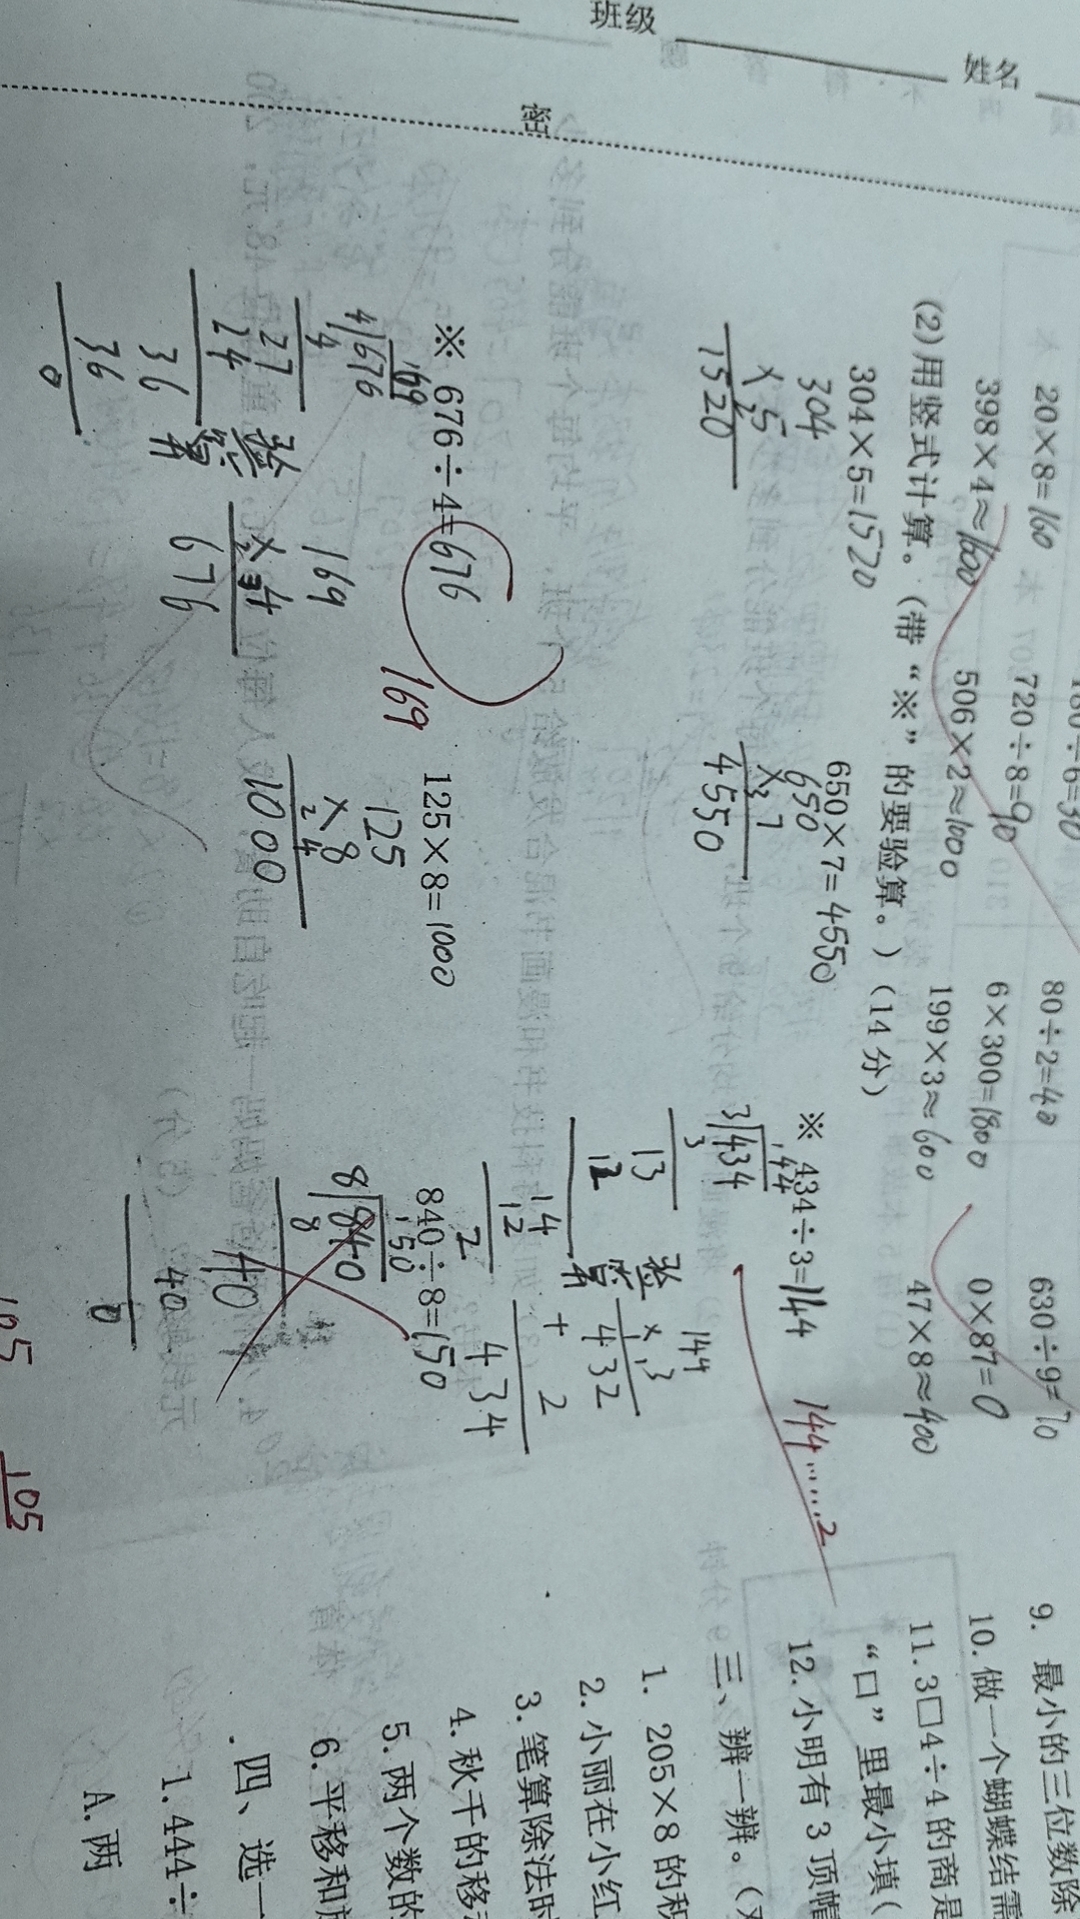 班级
姓名
密
180÷6=30
20×8=160 720÷8=90 80÷2=40 630÷9=70
398×4≈1600 506×2≈1000 6×300=1800 0×87=0
199×3≈600 47×8≈400
(2)用竖式计算。(带“※”的要验算。)(14分)
304×5=1520 650×7=4550 ※ 434÷3=144 144……2
304
× 5
1520
650
× 7
4550
144
3 434
3
13
12
14
12
2
验算
144
× 3
432
+ 2
434
※ 676÷4=676 169 125×8=1000 840÷8=150
169
4 676
4
27
24
36
36
0
验算
169
× 4
676
125
× 8
1000
150
8 840
8
40
40
0
105
105
9. 最小的三位数除
10. 做一个蝴蝶结需
11. 3□4÷4的商是
“口”里最小填(
12. 小明有3顶帽
三、辨一辨。(
1. 205×8的积
2. 小丽在小红
3. 笔算除法时
4. 秋千的移
5. 两个数的
6. 平移和
四、选一
1. 444÷
A. 两